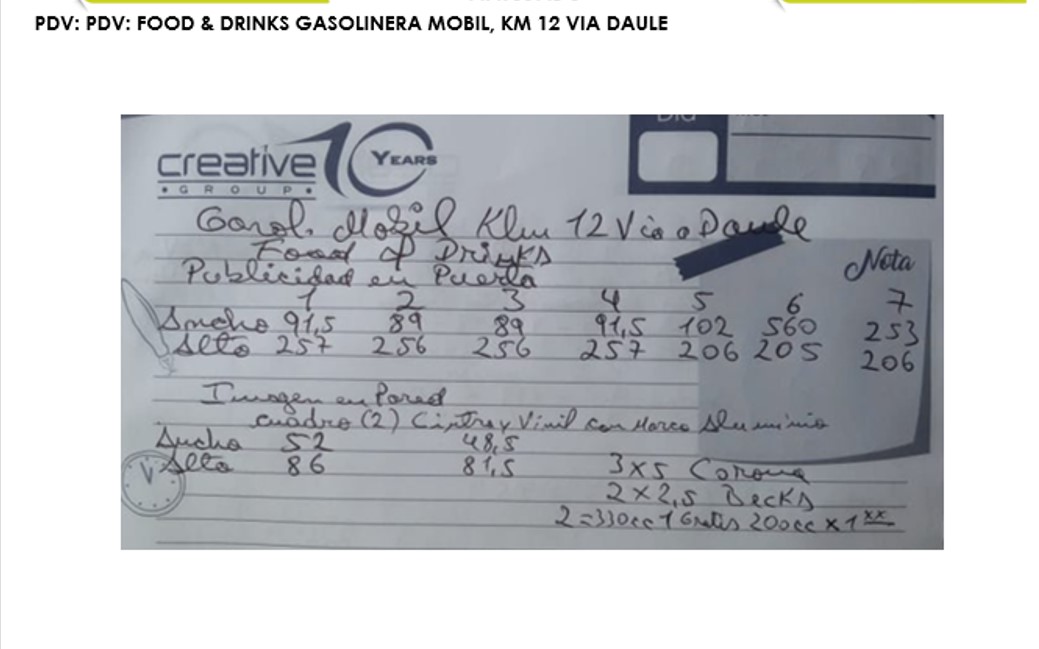 PDV: PDV: FOOD & DRINKS GASOLINERA MOBIL, KM 12 VIA DAULE
creative 10 YEARS
• GROUP •
Día
Gasol. Mobil Klm 12 Via a Daule
Food & Drinks
Nota
Publicidad en Puerta
1 2 3 4 5 6 7
Ancho 91,5 89 89 91,5 102 560 253
Alto 257 256 256 257 206 205 206
Imagen en Pared
cuadro (2) Cintra y Vinil con Marco Aluminio
Ancho 52 48,5
Alto 86 81,5 3x5 Corona
2x2,5 Becks
2=330cc 1 Gratis 200cc x 1 xx